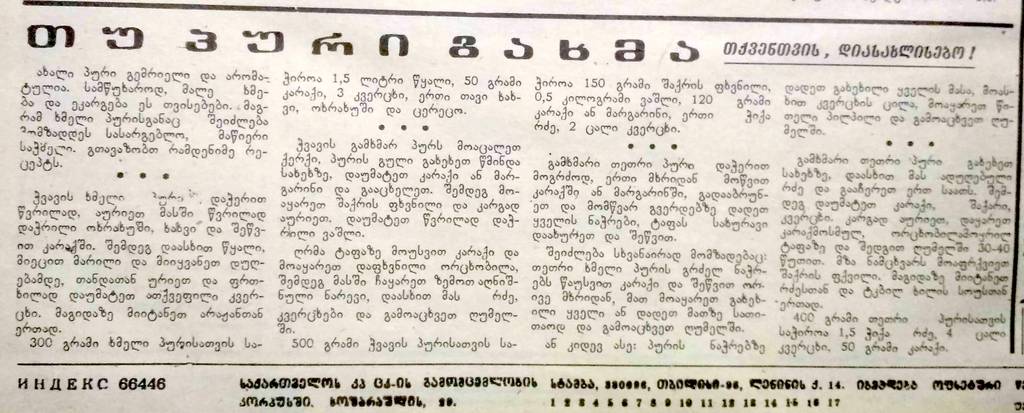 თუ პური გახმა
თქვენთვის, დიასახლისებო!
ახალი პური გემრიელი და არომა-
ტულია. სამწუხაროდ, მალე ხმე-
ბა და ეკარგება ეს თვისებები. მაგ-
რამ ხმელი პურისგანაც შეიძლება
მომზადდეს სასარგებლო, მაწიერი
საჭმელი. გთავაზობთ რამდენიმე რე-
ცეპტს.
• • •
ჭვავის ხმელი პური დაჭერით
წვრილად, აურიეთ მასში წვრილად
დაჭრილი ოხრახუში, ხახვი და შეწვ-
ით კარაქში. შემდეგ დაასხით წყალი,
მიეცით მარილი და მიიყვანეთ დუღ-
ებამდე, თანდათან ურიეთ და ფრთ-
ხილად დაუმატეთ ათქვეფილი კვერ-
ცხი. მაგიდაზე მიიტანეთ არაჟანთან
ერთად.
300 გრამი ხმელი პურისათვის სა-
ჭიროა 1,5 ლიტრი წყალი, 50 გრამი
კარაქი, 3 კვერცხი, ერთი თავი ხახ-
ვი, ოხრახუში და ცერეცო.
• • •
ჭვავის გამხმარ პურს მოაცალეთ
ქერქი, პურის გული გახეხეთ წმინდა
სახეხზე, დაუმატეთ კარაქი ან მარ-
გარინი და გააცხელეთ. შემდეგ მო-
აყარეთ შაქრის ფხვნილი და კარგად
აურიეთ. დაუმატეთ წვრილად დაჭ-
რილი ვაშლი.
ღრმა ტაფაზე მოუსვით კარაქი და
მოაყარეთ დაფხვნილი ორცხობილა,
შემდეგ მასში ჩაყარეთ ზემოთ აღნიშ-
ნული ნარევი, დაასხით მას რძე,
კვერცხები და გამოაცხვეთ ღუმელ-
ში.
500 გრამი ჭვავის პურისათვის სა-
ჭიროა 150 გრამი შაქრის ფხვნილი,
0,5 კილოგრამი ვაშლი, 120 გრამი
კარაქი ან მარგარინი, ერთი ჭიქა
რძე, 2 ცალი კვერცხი.
• • •
გამხმარი თეთრი პური დაჭერით
მოგრძოდ, ერთი მხრიდან მოწვით
კარაქში ან მარგარინში, გადააბრუნ-
ეთ და მომწვარ გვერდებზე დადეთ
ყველის ნაჭრები, ტაფას სახურავი
დაახურეთ და შეწვით.
შეიძლება სხვანაირად მომზადებაც:
თეთრი ხმელი პურის გრძელ ნაჭრ-
ებს წაუსვით კარაქი და შეწვით ორ-
ივე მხრიდან, მათ მოაყარეთ გახეხ-
ილი ყველი ან დადეთ მათზე სათი-
თაოდ და გამოაცხვეთ ღუმელში.
ან კიდევ ასე: პურის ნაჭრებზე
დადეთ გახეხილი ყველის მასა, მოას-
ხით კვერცხის ცილა, მოაყარეთ წი-
თელი პილპილი და გამოაცხვეთ ღუ-
მელში.
• • •
გამხმარი თეთრი პური გახეხეთ
სახეხზე, დაასხით მას ადუღებული
რძე და გააჩერეთ ერთ საათს. შემ-
დეგ დაუმატეთ კარაქი, შაქარი,
კვერცხი. კარგად აურიეთ, დაყარეთ
კარაქმოსმულ, ორცხობილამოყრილ
ტაფაზე და შედგით ღუმელში 30-40
წუთით. მზა ნამცხვარს მოაფრქვიეთ
შაქრის ფქვილი. მაგიდაზე მიიტანეთ
რძესთან და ტკბილ ხილის სოუსთან
ერთად.
400 გრამი თეთრი პურისათვის
საჭიროა 1,5 ჭიქა რძე, 4 ცალი
კვერცხი, 50 გრამი კარაქი.
ИНДЕКС 66446
საქართველოს კპ ცკ-ის გამომცემლობის სტამბა, 380096, თბილისი-96, ლენინის ქ. 14. იბეჭდება ოფსეტური
კორპუსში.
1 2 3 4 5 6 7 8 9 10 11 12 13 14 15 16 17